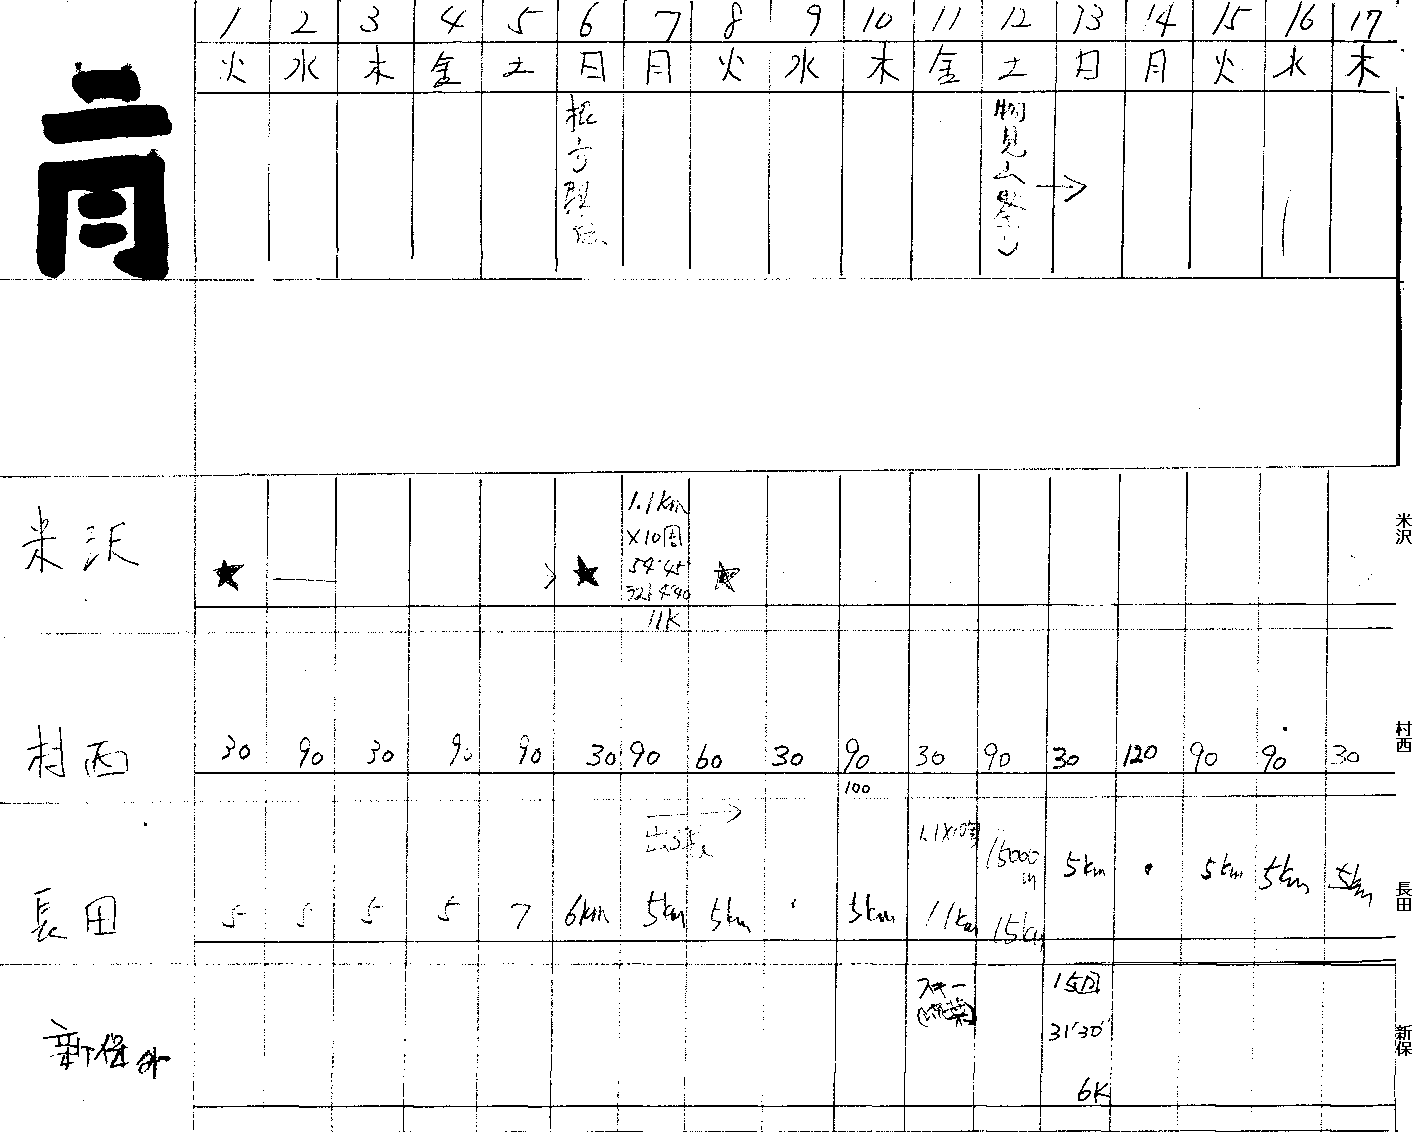 二月
1 2 3 4 5 6 7 8 9 10 11 12 13 14 15 16 17
火 水 木 金 土 日 月 火 水 木 金 土 日 月 火 水 木
根方駅伝
物見山祭り →
米沢
★ ★ ★
1.1km
×10周
54'45
11K
米沢
村西
30 90 30 90 90 30 90 60 30 90 30 90 30 120 90 90 30
100
村西
長田
出張
15000m
5km • 5km 5km 5km
5 5 5 5 7 6km 5km 5km • 5km 11km 15km
長田
新保
スキー
15回
31'30"
6K
新保